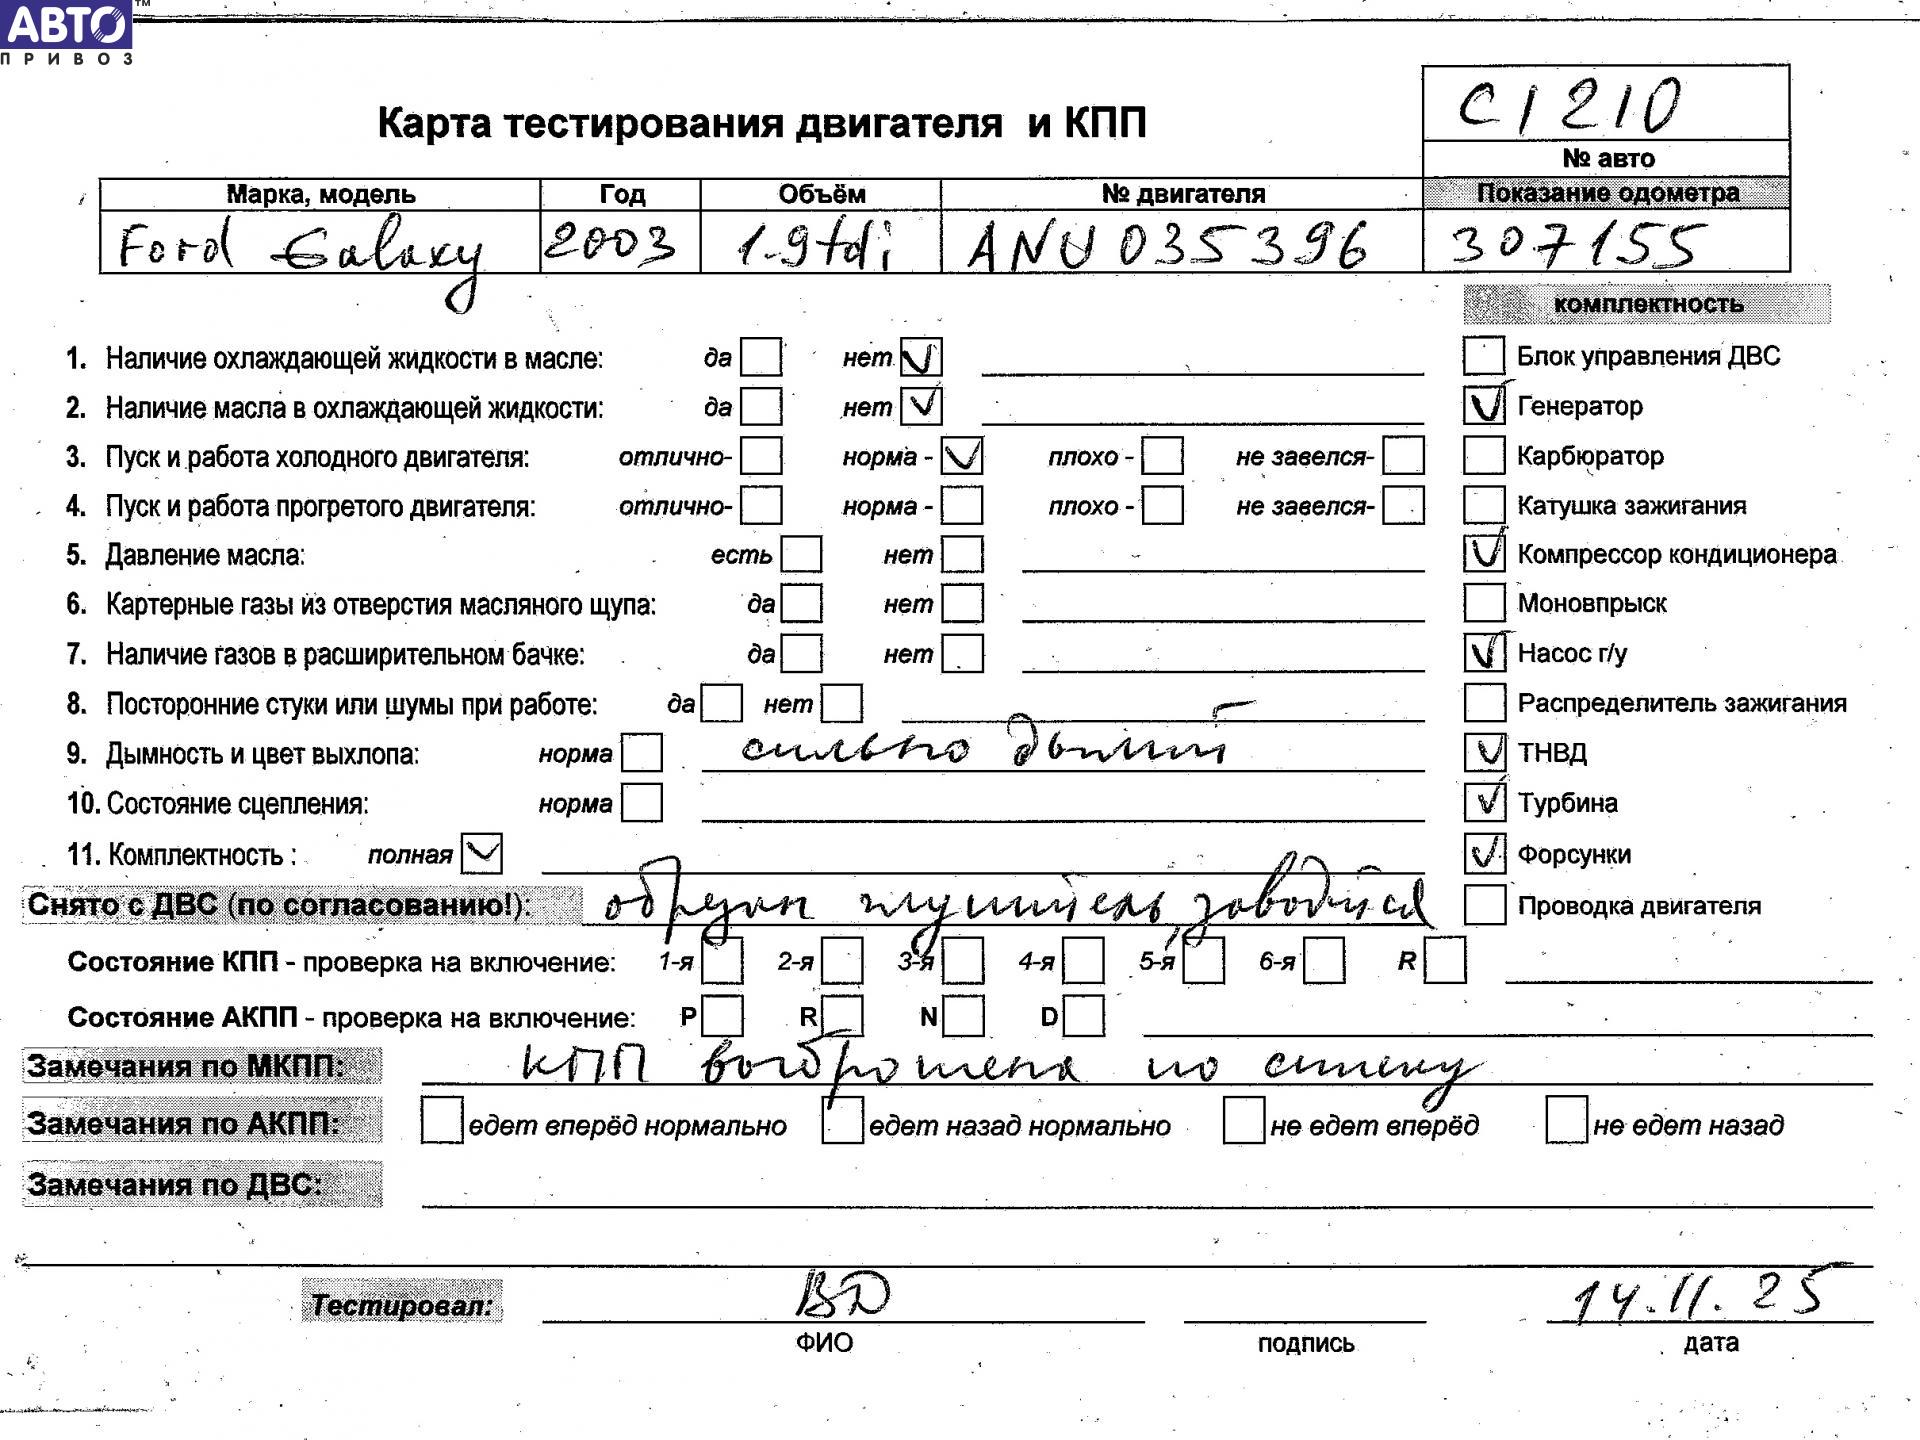 АВТО™
ПРИВОЗ
C1210
Карта тестирования двигателя и КПП
№ авто
Марка, модель Год Объём № двигателя Показание одометра
Ford Galaxy 2003 1.9tdi ANU 035396 307155
комплектность
1. Наличие охлаждающей жидкости в масле: да нет Блок управления ДВС
2. Наличие масла в охлаждающей жидкости: да нет Генератор
3. Пуск и работа холодного двигателя: отлично- норма - плохо - не завелся- Карбюратор
4. Пуск и работа прогретого двигателя: отлично- норма - плохо - не завелся- Катушка зажигания
5. Давление масла: есть нет Компрессор кондиционера
6. Картерные газы из отверстия масляного щупа: да нет Моновпрыск
7. Наличие газов в расширительном бачке: да нет Насос г/у
8. Посторонние стуки или шумы при работе: да нет Распределитель зажигания
9. Дымность и цвет выхлопа: норма сильно дымит ТНВД
10. Состояние сцепления: норма Турбина
11. Комплектность : полная Форсунки
Снято с ДВС (по согласованию!): обрезан глушитель, заводится Проводка двигателя
Состояние КПП - проверка на включение: 1-я 2-я 3-я 4-я 5-я 6-я R
Состояние АКПП - проверка на включение: P R N D
Замечания по МКПП: КПП выброшена по
Замечания по АКПП: едет вперёд нормально едет назад нормально не едет вперёд не едет назад
Замечания по ДВС:
Тестировал: ВД 14.11.25
ФИО подпись дата